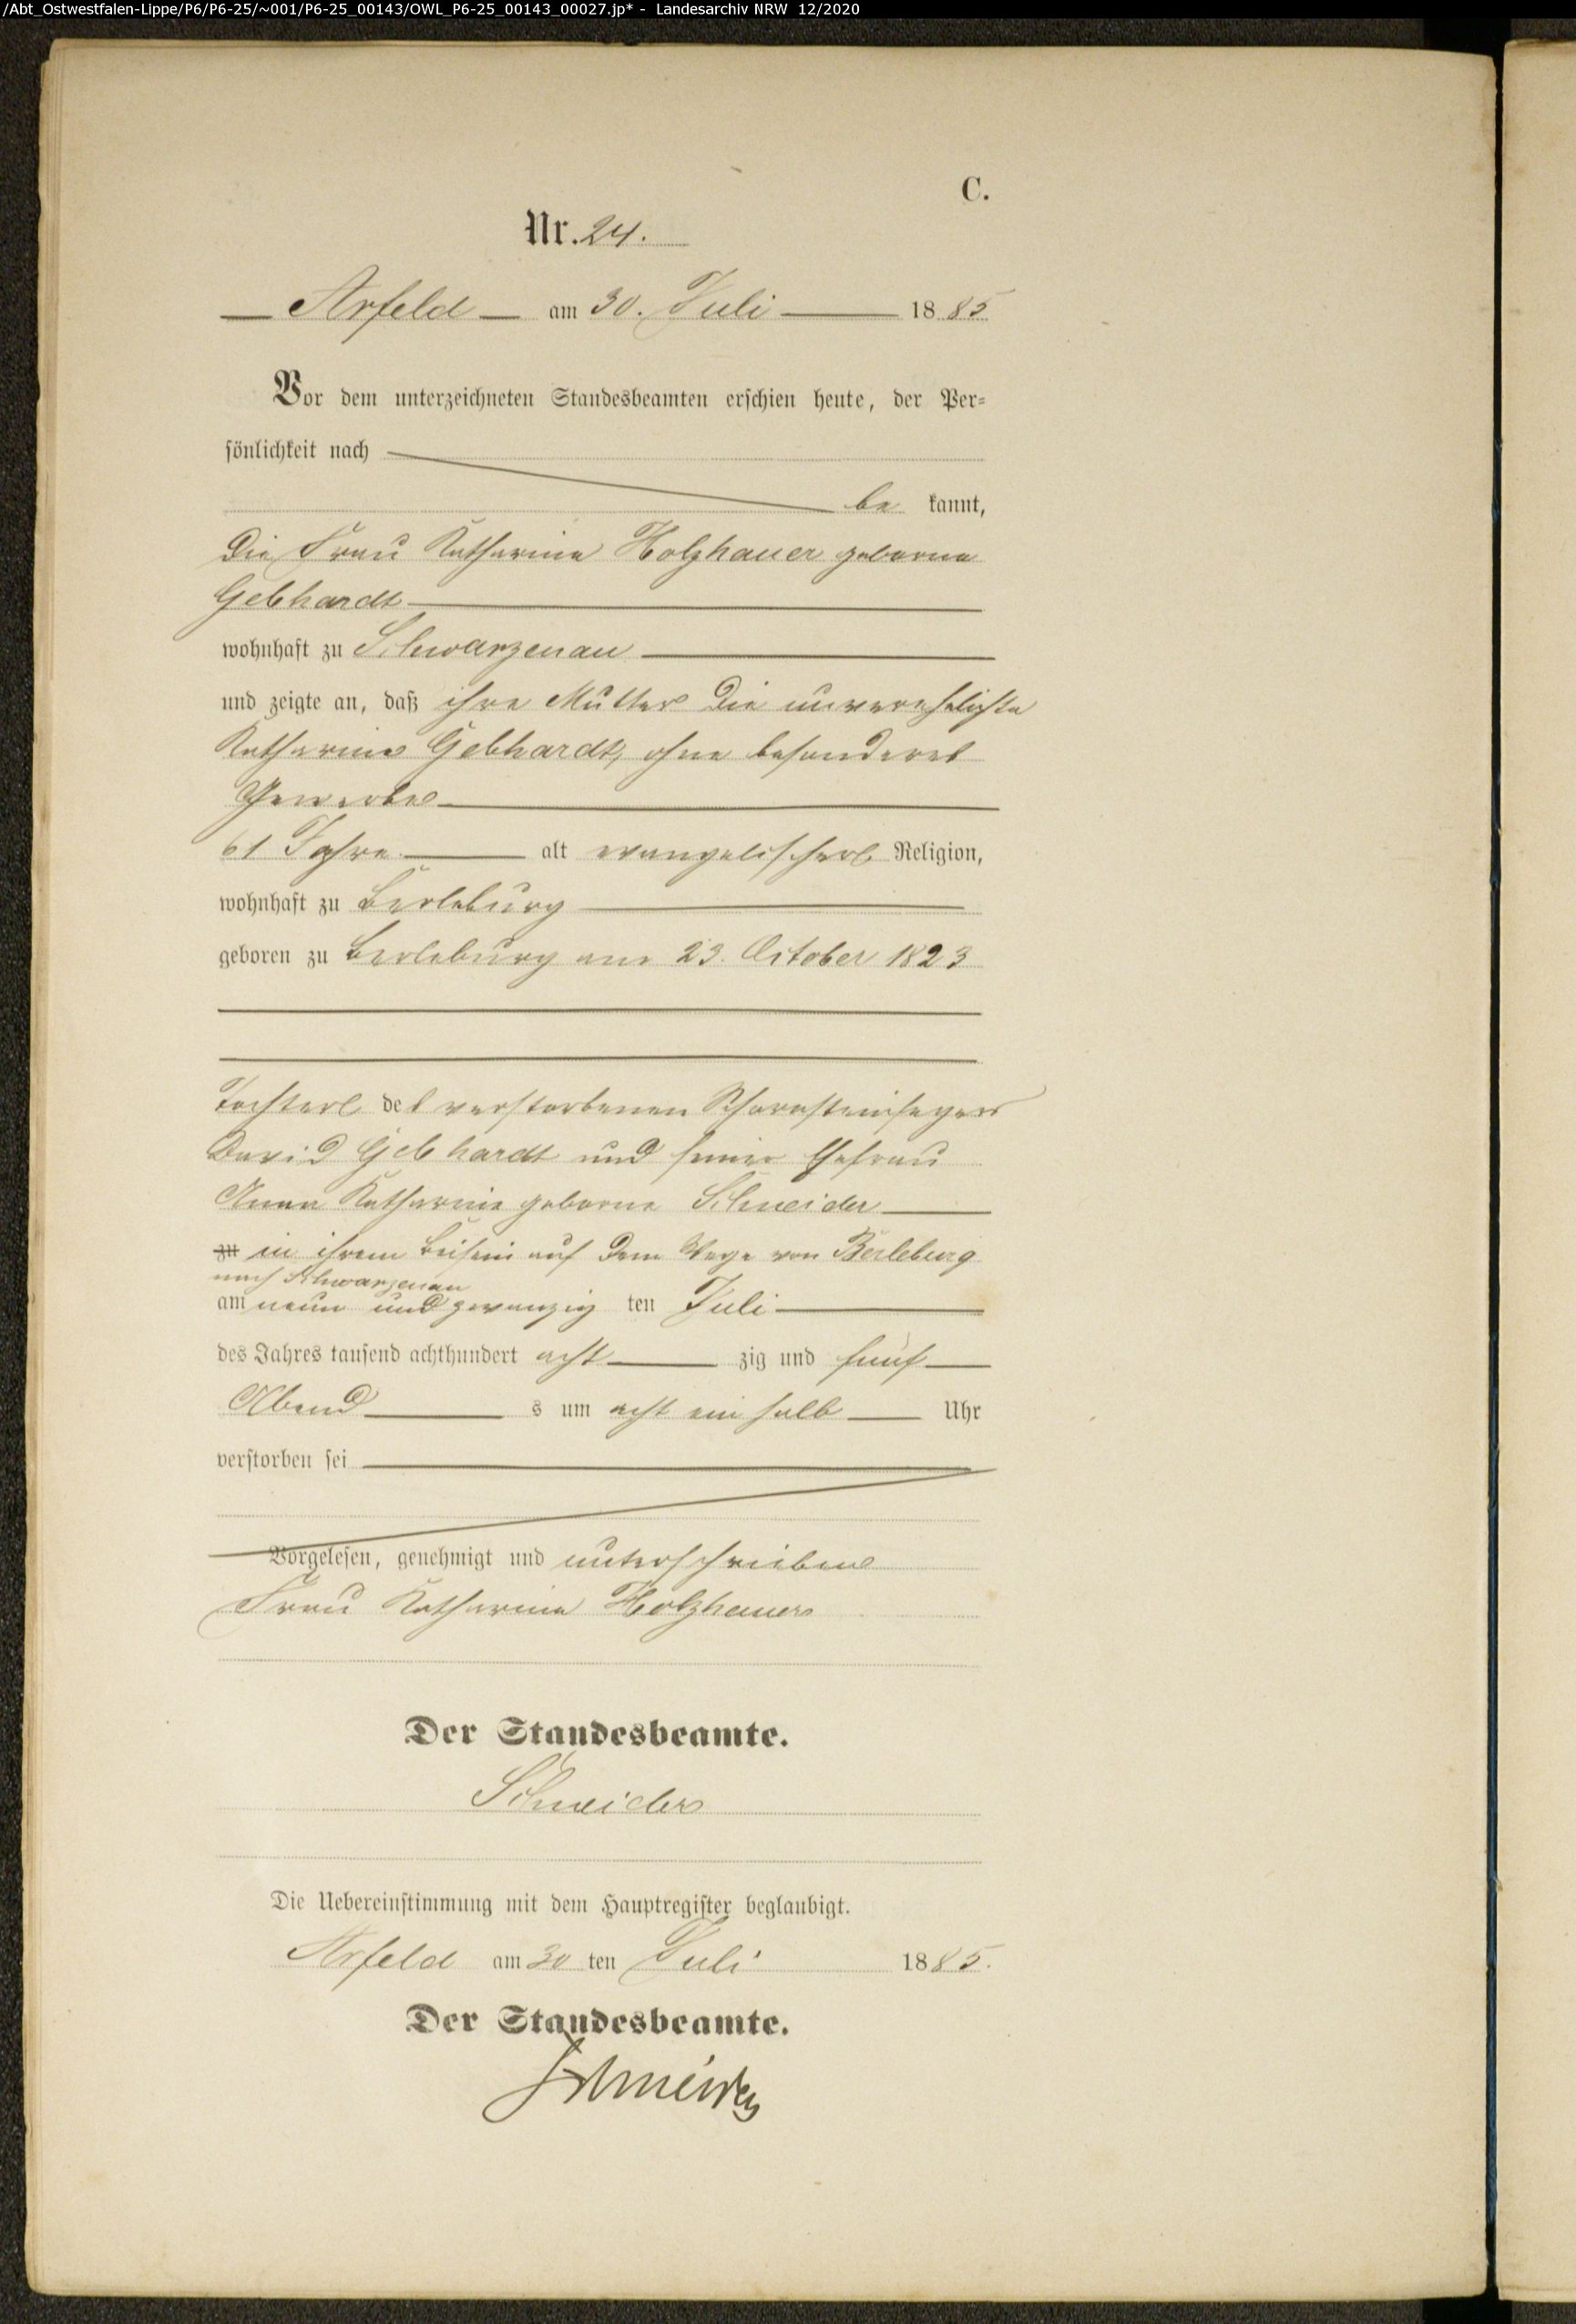 /Abt_Ostwestfalen-Lippe/P6/P6-25/~001/P6-25_00143/OWL_P6-25_00143_00027.jp* - Landesarchiv NRW 12/2020
C.
Nr. 24.
Arfeld am 30. Juli 1885
Vor dem unterzeichneten Standesbeamten erschien heute, der Per-
sönlichkeit nach
be kannt,
die Frau Katharina Holzhauer geborne
Gebhardt
wohnhaft zu Schwarzenau
und zeigte an, daß ihre Mutter die unverehelichte
Katharina Gebhardt, ohne besonderes
Gewerbe
61 Jahre alt evangelischer Religion,
wohnhaft zu Berleburg
geboren zu Berleburg am 23. October 1823
Tochter des verstorbenen Schornsteinfegers
David Gebhardt und seiner Ehefrau
Anna Katharina geborne Schneider
zu in ihrem Beisein auf dem Wege von Berleburg
nach Schwarzenau
am neun und zwanzig ten Juli
des Jahres tausend achthundert acht zig und fünf
Abend s um acht ein halb Uhr
verstorben sei
Vorgelesen, genehmigt und unterschrieben
Frau Katharina Holzhauer
Der Standesbeamte.
Schneider
Die Uebereinstimmung mit dem Hauptregister beglaubigt.
Arfeld am 30 ten Juli 1885.
Der Standesbeamte.
Schneider